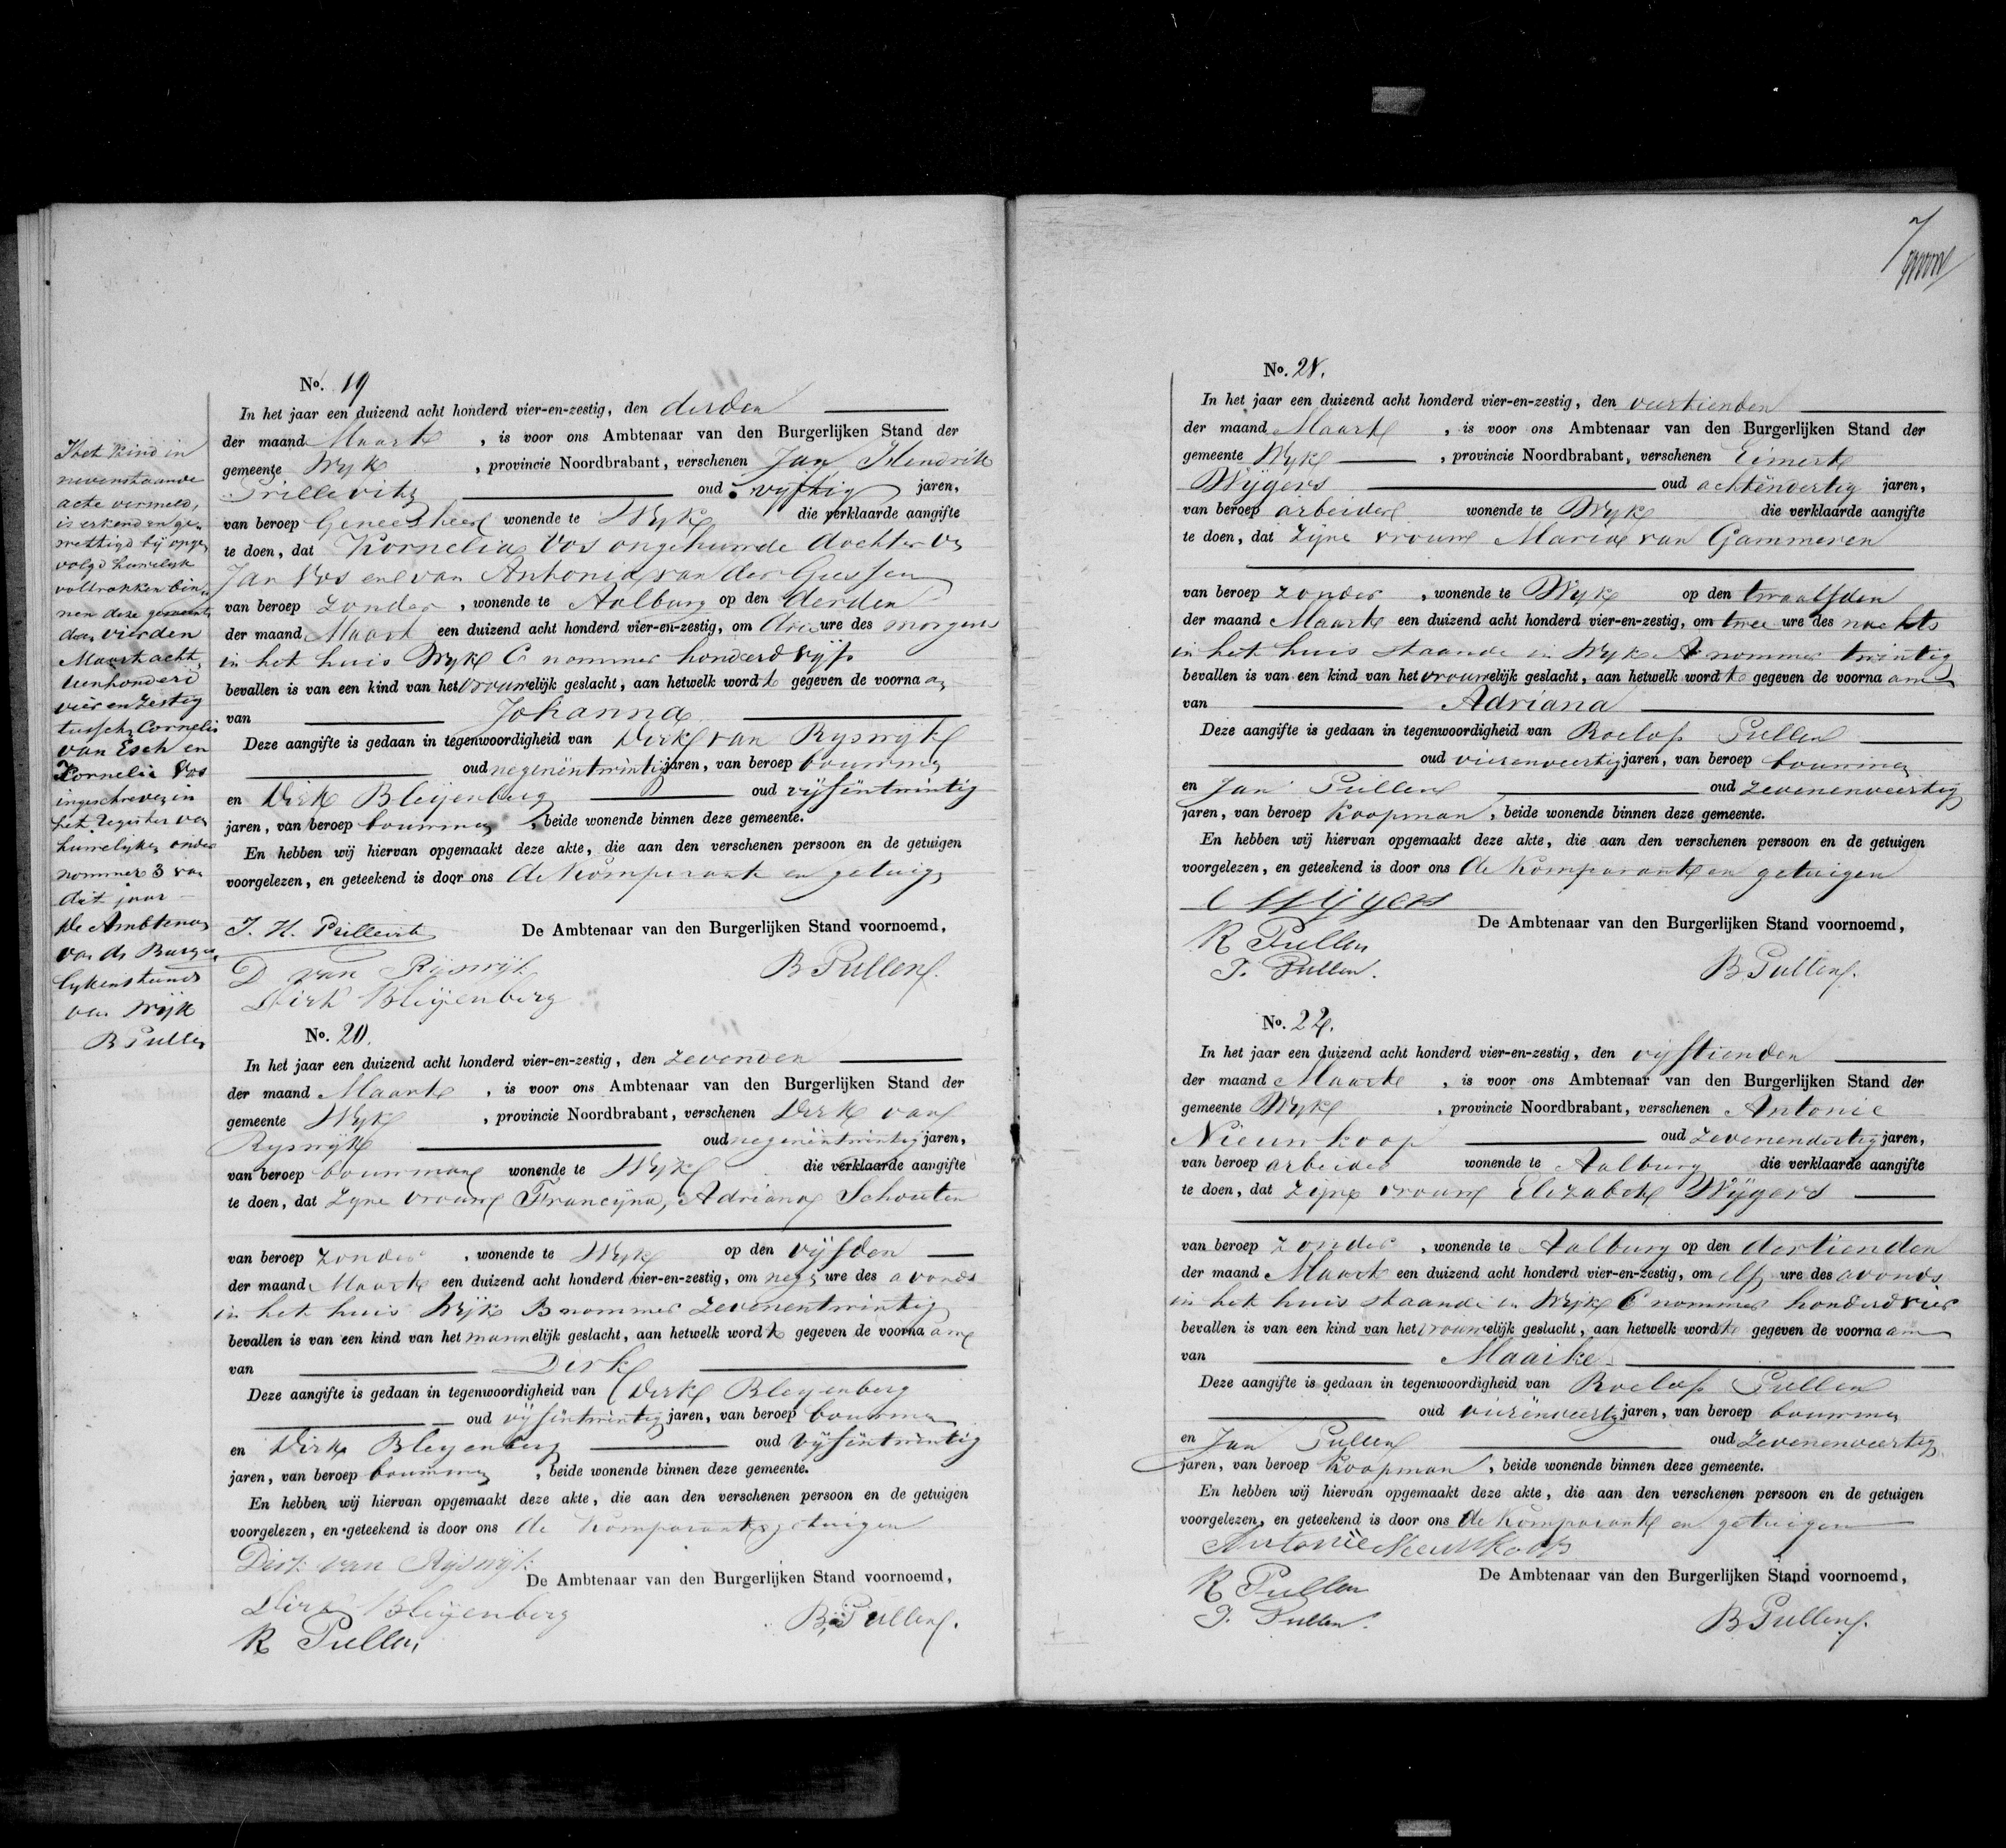 Het kind in
nevenstaande
acte vermeld,
is erkend en ge-
wettigd bij opge-
volgd huwelijk
voltrokken bin-
nen deze gemeente
den vierden
Maart acht-
tienhonderd
vier en zestig
tussch. Cornelis
van Esch en
Kornelia Vos
ingeschreven in
het register van
huwelijken onder
nommer 3 van
dit jaar
De Ambtenaar
van de Burger-
lykenstand
van Wijk
B Pullen
No. 19
In het jaar een duizend acht honderd vier-en-zestig, den derden
der maand Maart , is voor ons Ambtenaar van den Burgerlijken Stand der
gemeente Wyk , provincie Noordbrabant, verschenen Jan Hendrik
Prillevitz oud vyftig jaren,
van beroep Geneesheer wonende te Wyk die verklaarde aangifte
te doen, dat Kornelia Vos ongehuwde dochter van
Jan Vos en van Antonia van der Giessen
van beroep zonder , wonende te Aalburg op den derden
der maand Maart een duizend acht honderd vier-en-zestig, om drie ure des morgens
in het huis Wyk C nommer honderd vijf
bevallen is van een kind van het vrouwelijk geslacht, aan hetwelk wordt gegeven de voornaam
van Johanna
Deze aangifte is gedaan in tegenwoordigheid van Dirk van Ryswyk
oud negenëntwintig jaren, van beroep bouwman
en Dirk Bleijenberg oud vijfëntwintig
jaren, van beroep bouwman , beide wonende binnen deze gemeente.
En hebben wij hiervan opgemaakt deze akte, die aan den verschenen persoon en de getuigen
voorgelezen, en geteekend is door ons de Komparant en getuigen
J. H. Prillevitz De Ambtenaar van den Burgerlijken Stand voornoemd,
D van Rijswijk B Pullen.
Dirk Bleijenberg
No. 20.
In het jaar een duizend acht honderd vier-en-zestig, den zevenden
der maand Maart , is voor ons Ambtenaar van den Burgerlijken Stand der
gemeente Wyk , provincie Noordbrabant, verschenen Dirk van
Ryswijk oud negenëntwintig jaren,
van beroep bouwman wonende te Wijk die verklaarde aangifte
te doen, dat zyne vrouw Francyna, Adriana Schouten
van beroep zonder , wonende te Wyk op den vijfden
der maand Maart een duizend acht honderd vier-en-zestig, om negen ure des avonds
in het huis Wijk B nommer zevenentwintig
bevallen is van een kind van het mannelijk geslacht, aan hetwelk wordt gegeven de voornaam
van Dirk
Deze aangifte is gedaan in tegenwoordigheid van Dirk Bleyenberg
oud vijfëntwintig jaren, van beroep bouwman
en Dirk Bleyenberg oud vijfëntwintig
jaren, van beroep bouwman , beide wonende binnen deze gemeente.
En hebben wij hiervan opgemaakt deze akte, die aan den verschenen persoon en de getuigen
voorgelezen, en geteekend is door ons de Komparant en getuigen
Dirk van Rijswijk
De Ambtenaar van den Burgerlijken Stand voornoemd,
Dirk Bleijenberg B. Pullen.
R Pullen
7
No. 21.
In het jaar een duizend acht honderd vier-en-zestig, den veertienden
der maand Maart , is voor ons Ambtenaar van den Burgerlijken Stand der
gemeente Wyk , provincie Noordbrabant, verschenen Eimert
Wijgers oud achtëndertig jaren,
van beroep arbeider wonende te Wyk die verklaarde aangifte
te doen, dat zyne vrouw Maria van Gammeren
van beroep zonder , wonende te Wyk op den twaalfden
der maand Maart een duizend acht honderd vier-en-zestig, om twee ure des nachts
in het huis staande in Wyk A nommer twintig
bevallen is van een kind van het vrouwelijk geslacht, aan hetwelk wordt gegeven de voornaam
van Adriana
Deze aangifte is gedaan in tegenwoordigheid van Roelof Pullen
oud vierenveertig jaren, van beroep bouwman
en Jan Pullen oud zevenenveertig
jaren, van beroep Koopman , beide wonende binnen deze gemeente.
En hebben wij hiervan opgemaakt deze akte, die aan den verschenen persoon en de getuigen
voorgelezen, en geteekend is door ons de Komparant en getuigen
E Wijgers
De Ambtenaar van den Burgerlijken Stand voornoemd,
R Pullen
J. Pullen. B. Pullen.
No. 22.
In het jaar een duizend acht honderd vier-en-zestig, den vijftienden
der maand Maart , is voor ons Ambtenaar van den Burgerlijken Stand der
gemeente Wyk , provincie Noordbrabant, verschenen Antonie
Nieuwkoop oud zevenendertig jaren,
van beroep arbeider wonende te Aalburg die verklaarde aangifte
te doen, dat zijne vrouw Elizabeth Wijgers
van beroep zonder , wonende te Aalburg op den dertienden
der maand Maart een duizend acht honderd vier-en-zestig, om elf ure des avonds
in het huis staande in Wyk C nommer honderd vier
bevallen is van een kind van het vrouwelijk geslacht, aan hetwelk wordt gegeven de voornaam
van Maaike
Deze aangifte is gedaan in tegenwoordigheid van Roelof Pullen
oud vierënveertig jaren, van beroep bouwman
en Jan Pullen oud zevenenveertig
jaren, van beroep Koopman , beide wonende binnen deze gemeente.
En hebben wij hiervan opgemaakt deze akte, die aan den verschenen persoon en de getuigen
voorgelezen, en geteekend is door ons de Komparant en getuigen
Antonie Nieuwkoop
De Ambtenaar van den Burgerlijken Stand voornoemd,
R Pullen
J. Pullen. B Pullen.